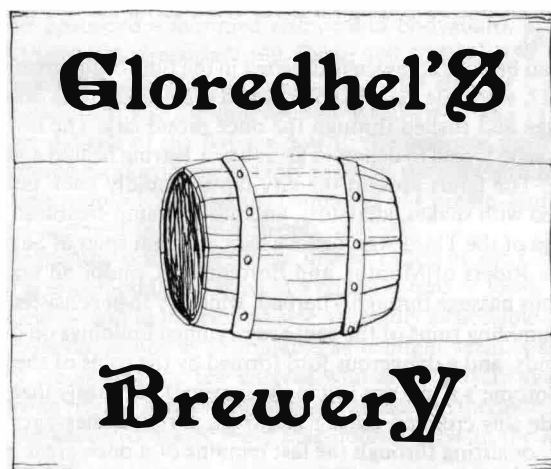 Gloredhel'S
BrewerY